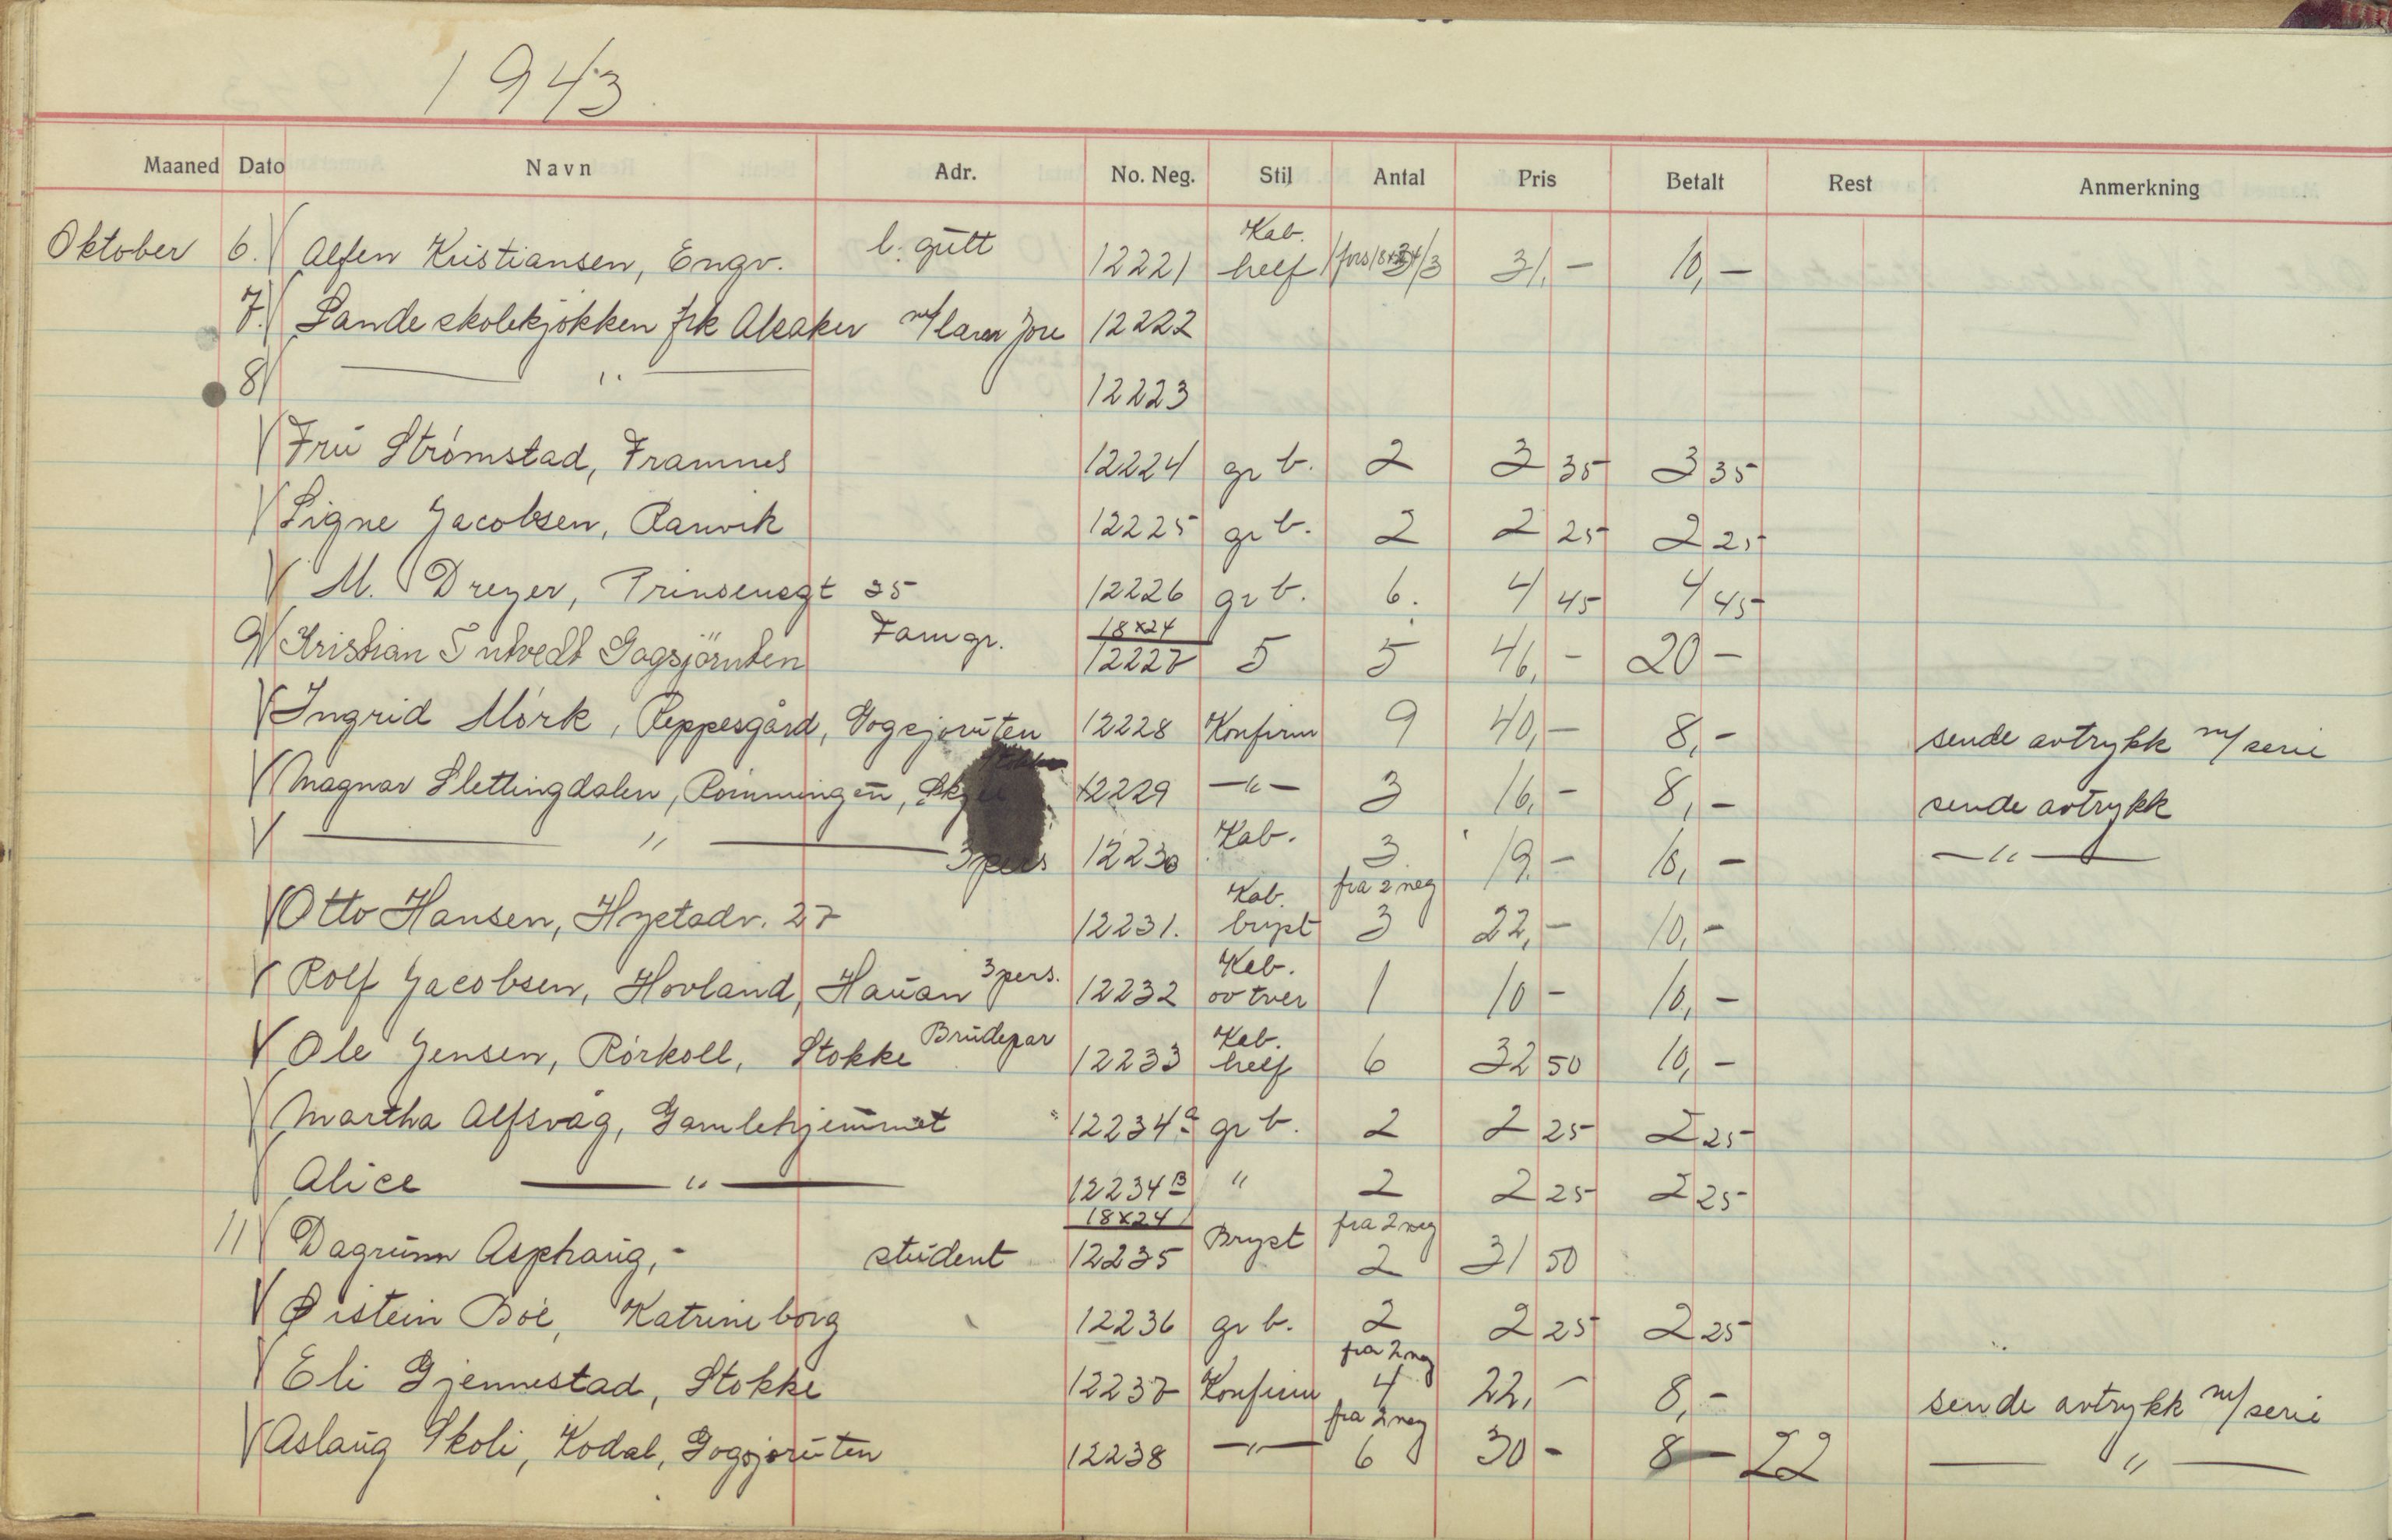 1943
Maaned Dato Navn Adr. No. Neg. Stil Antal Pris Betalt Rest Anmerkning
Oktober 6. Alfen Kristiansen, Engv. l. gutt 12221 Kab. helf 3 31,- 10,-
7. Sande skolekjøkken frk Alsaker m/ 12222
8 " 12223
Fru Strømstad, Framnes 12224 gr b. 2 3 35 3 35
Signe Jacobsen, Ranvik 12225 gr b. 2 2 25 2 25
M. Dreyer, Prinsensgt 35 12226 gr b. 6. 4 45 4 45
9 Kristian Gogsjøruten Fam gr. 18x24 12227 5 5 46,- 20 -
Ingrid Mørk, Reppesgård, Gogsjøruten 12228 Konfirm 9 40,- 8,- sende avtrykk m/ serie
Magnar Slettingdalen, Rømmingen, 12229 -"- 3 16,- 8,- sende avtrykk
" 3 pers 12230 Kab. 3 19,- 10,- -"-
Otto Hansen, Hystadv. 27 12231. Kab. bryst fra 2 neg 3 22,- 10,-
Rolf Jacobsen, Hovland, Hauan 3 pers. 12232 Kab. ov tver 1 10 - 10,-
Ole Jensen, Rørkoll, Stokke Brudepar 12233 Kab. helf 6 32 50 10,-
Martha Alfsvåg, Gamlehjemmet 12234 a gr b. 2 2 25 2 25
Alice " 12234 B " 2 2 25 2 25
11 Dagrunn Asphaug, - student 18x24 12235 Bryst fra 2 neg 2 31 50
Øistein Bøe, Katrineborg 12236 gr b. 2 2 25 2 25
Eli Gjennestad, Stokke 12237 Konfirm fra 2 neg 4 22,- 8,- sende avtrykk m/ serie
Aslaug Skoli, Kodal, Gogsjøruten 12238 -"- fra 2 neg 6 30 - 8 - 22 "